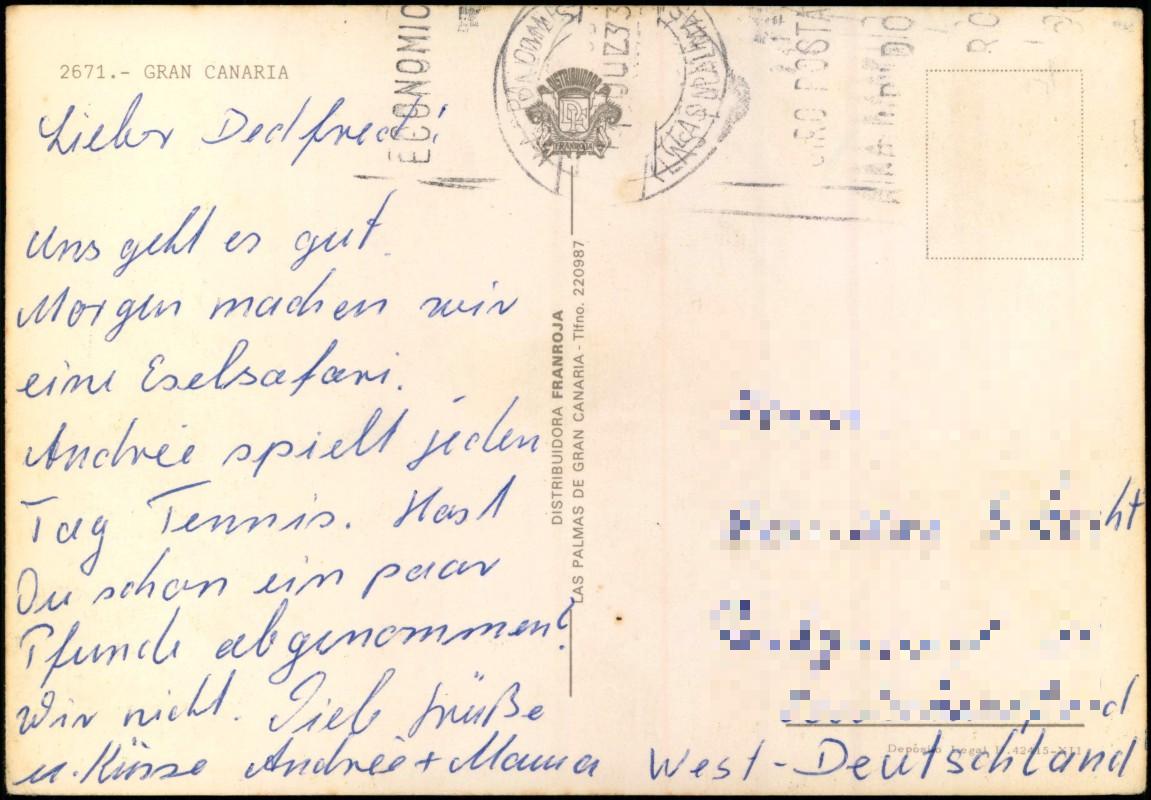 2671.- GRAN CANARIA
Lieber Dedfred!
Uns geht es gut.
Morgen machen wir
eine Eselsafari.
Andrée spielt jeden
Tag Tennis. Hast
Du schon ein paar
Pfunde abgenommen?
Wir nicht. Viele Grüße
u. Küsse Andrée + Mama
ECONOMIC
GIRO POSTA
DISTRIBUIDORA
FRANROJA
DISTRIBUIDORA FRANROJA
LAS PALMAS DE GRAN CANARIA - Tlfno. 220987
ht
d
Depósito Legal B. 42415-XII
West-Deutschland